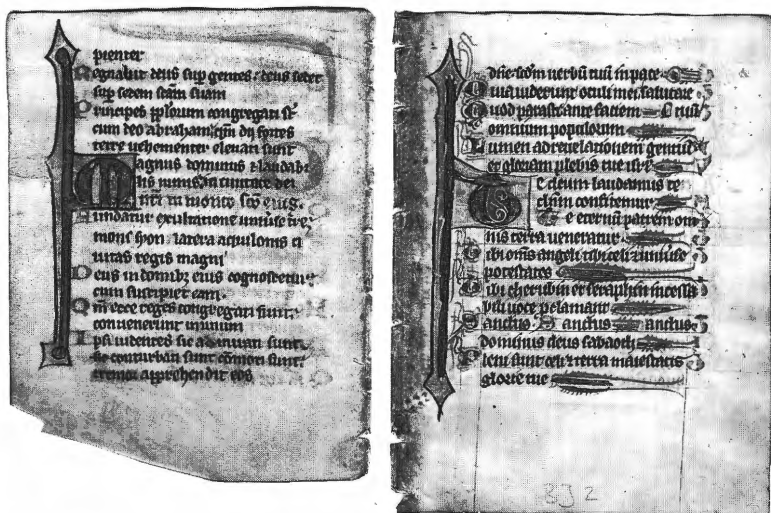 pienter
Regnabit deus sup gentes: deus sedet
sup sedem scam suam
Principes pploum congregati st
cum deo abraham: qm dij fortes
terre uehementer eleuati sunt
Magnus dominus & laudabi
lis nimis in ciuitate dei
nri in monte sco eius.
Fundatur exultatione uniuse tre
mons syon. latera aquilonis ci
uitas regis magni
Deus in domibz eius cognoscetur
cum suscipiet eam.
Qm ecce reges congregati sunt.
conuenerunt in unum
Ipsi uidentes sic admirati sunt.
conturbati sunt cōmoti sunt.
tremor apprehendit eos
dne: scdm uerbū tuū in pace
Quia uiderunt oculi mei salutare
Quod parasti ante faciem
omnium populorum
Lumen ad reuelationem gentiū
et gloriam plebis tue isrl
Te deum laudamus te
dnm confitemur
Te eternū patrem om
nis terra ueneratur
Tibi oms angeli tibi celi & uniuse
potestates
Tibi cherubin et seraphin incessa
bili uoce pclamant
Sanctus. Sanctus sanctus
dominus deus sabaoth
Pleni sunt celi & terra maiestatis
glorie tue
832